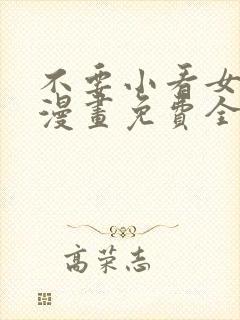 不要小看女
漫畫免費全
高荣志